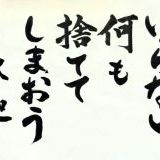 いらない
何も
捨てて
しまおう